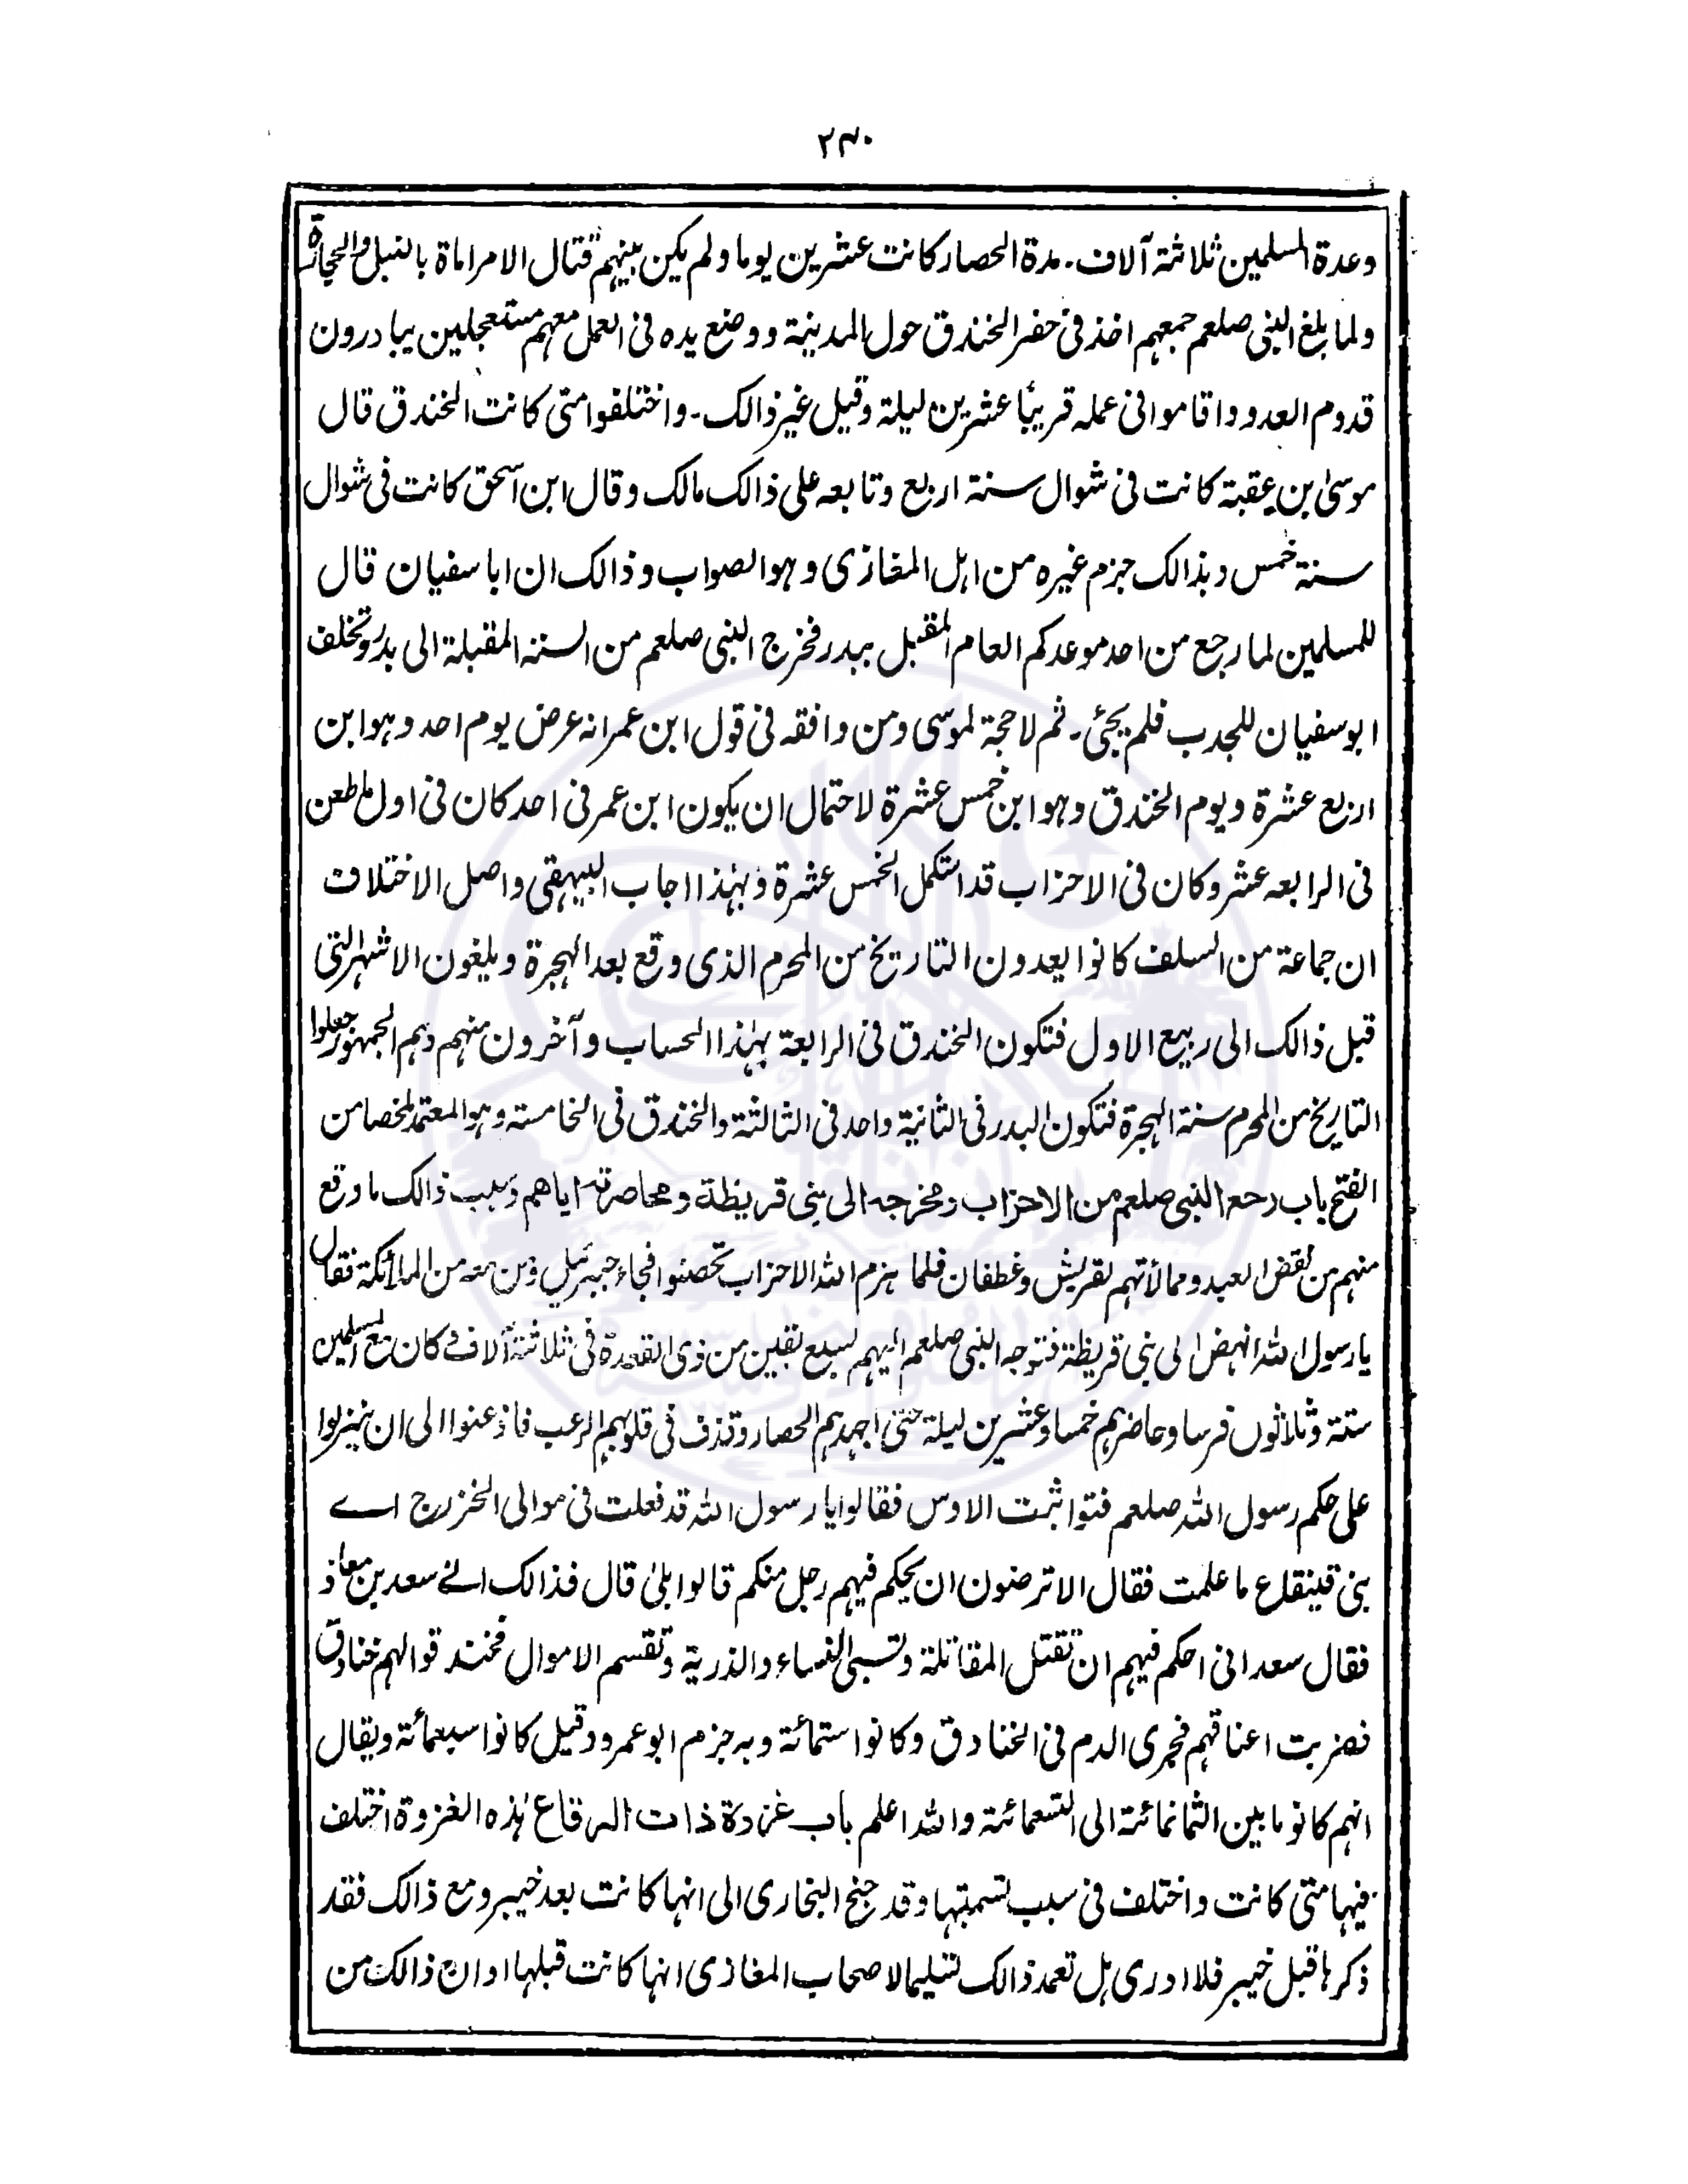 ۲۴۰
وعدة المسلمين ثلاثة آلاف۔ مدة الحصار كانت عشرين يوما ولم يكن بينهم قتال الا مراماة بالنبل والحجارة
ولما بلغ النبى صلعم جمعهم اخذ فى حفر الخندق حول المدينة ووضع يده فى العمل معهم مستعجلين يبادرون
قدوم العدو واقاموا فى عمله قريبًا عشرين ليلة وقيل غير ذالك۔ واختلفوا متى كانت الخندق قال
موسىٰ بن عقبة كانت فى شوال سنة اربع وتابعه على ذالك مالك وقال ابن اسحق كانت فى شوال
سنة خمس وبذالك جزم غيره من اہل المغازى وہو الصواب وذالك ان ابا سفيان قال
للمسلمين لما رجع من احد موعدكم العام المقبل ببدر فخرج النبى صلعم من السنة المقبلة الى بدر وتخلف
ابو سفيان للجدب فلم يجئى۔ ثم لا حجة لموسى ومن وافقه فى قول ابن عمر انه عرض يوم احد وہو ابن
اربع عشرة ويوم الخندق وہو ابن خمس عشرة لاحتمال ان يكون ابن عمر فى احد كان فى اول ما طعن
فى الرابعه عشر وكان فى الاحزاب قد استكمل الخمس عشرة وبہٰذا اجاب البيهقى واصل الاختلاف
ان جماعة من السلف كانوا يعدون التاريخ من المحرم الذى وقع بعد الہجرة ويلغون الاشہر التى
قبل ذالك الى ربيع الاول فتكون الخندق فى الرابعة بہٰذا الحساب وآخرون منہم وہم الجمہور جعلوا
التاريخ من المحرم سنة الہجرة فتكون البدر فى الثانية واحد فى الثالثة والخندق فى الخامسته وہو المعتمد ملخصا من
الفتح باب رجع النبى صلعم من الاحزاب ومخرجه الى بنى قريظة ومحاصرته اياهم وسبب ذالك ما وقع
منہم من نقض العہد وممالأتہم لقريش وغطفان فلما ہزم اللہ الاحزاب تحصنوا فجاء جبرئيل ومن معه من الملائكة فقال
يا رسول اللہ انہض الى بنى قريظة فتوجه النبى صلعم اليہم لسبع بقين من ذى القعدة فى ثلاثة آلاف وكان مع المسلمين
ستة وثلاثون فرسا وحاصرہم خمسا وعشرين ليلة حتى اجہدہم الحصار وقذف فى قلوبہم الرعب فاذعنوا الى ان ينزلوا
على حكم رسول اللہ صلعم فتواثبت الاوس فقالوا يا رسول اللہ قد فعلت فى موالى الخزرج اے
بنى قينقاع ما علمت فقال الا ترضون ان يحكم فيہم رجل منكم قالوا بلىٰ قال فذالك الے سعد بن معاذ
فقال سعد انى احكم فيہم ان تقتل المقاتلة وتسبى النساء والذرية وتقسم الاموال فخندقوا لہم خنادق
فضربت اعناقہم فجرى الدم فى الخنادق وكانوا ستمائة وبه جزم ابو عمرو وقيل كانوا سبعمائة ويقال
انہم كانو ما بين الثمانمائة الى التسعمائة واللہ اعلم باب غزوة ذات الرقاع ہٰذه الغزوة اختلف
فيہا متى كانت واختلف فى سبب تسميتہا وقد جنح البخارى الى انہا كانت بعد خيبر ومع ذالك فقد
ذكرہا قبل خيبر فلا ادرى ہل تعمد ذالك تسليما لاصحاب المغازى انہا كانت قبلہا او ان ذالك من